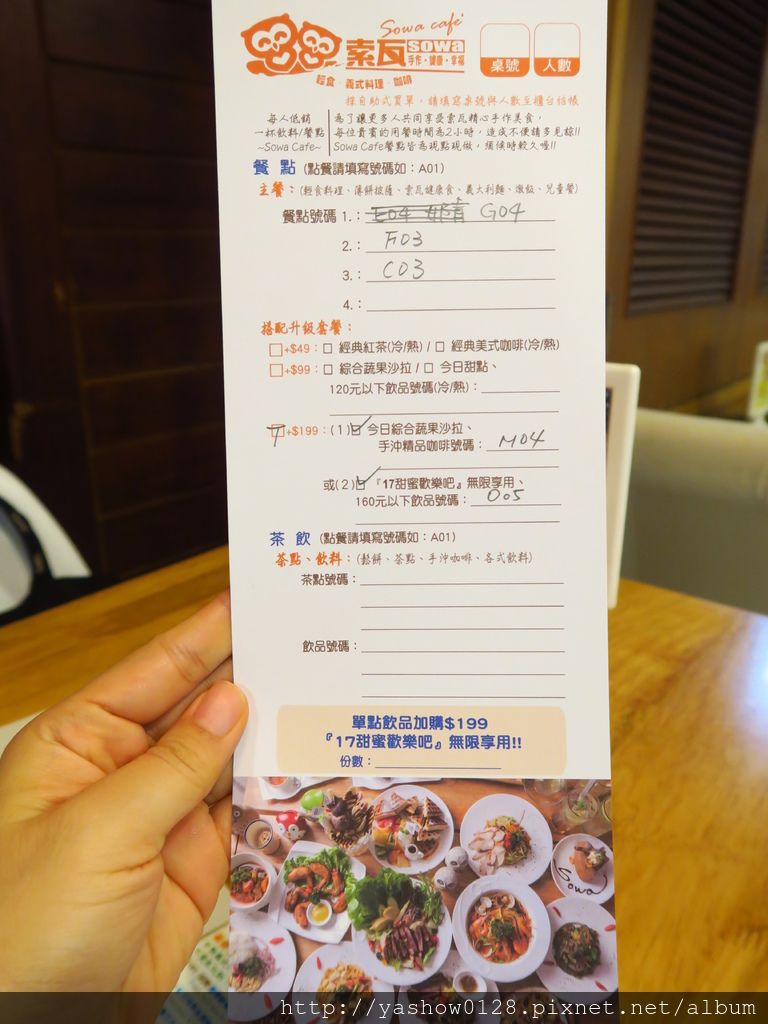 Sowa café
索瓦 sowa
手作·健康·幸福
輕食·義式料理·咖啡
桌號 人數
採自助式買單，請填寫桌號與人數至櫃台結帳
每人低銷
一杯飲料/餐點
~Sowa Cafe~
為了讓更多人共同享受索瓦精心手作美食，
每位貴賓的用餐時間為2小時，造成不便請多見諒!!
Sowa Cafe餐點皆為現點現做，稍候時較久喔!!
餐 點 (點餐請填寫號碼如：A01)
主餐：(輕食料理、薄餅披薩、索瓦健康食、義大利麵、燉飯、兒童餐)
餐點號碼 1.： E04 G04
2.： F03
3.： C03
4.：
搭配升級套餐：
□+$49：□ 經典紅茶(冷/熱) / □ 經典美式咖啡(冷/熱)
□+$99：□ 綜合蔬果沙拉 / □ 今日甜點、
120元以下飲品號碼(冷/熱)：
□+$199：(1)□ 今日綜合蔬果沙拉、
手沖精品咖啡號碼： M04
或(2)□『17甜蜜歡樂吧』無限享用、
160元以下飲品號碼： O05
茶 飲 (點餐請填寫號碼如：A01)
茶點、飲料：(鬆餅、茶點、手沖咖啡、各式飲料)
茶點號碼：
飲品號碼：
單點飲品加購$199
『17甜蜜歡樂吧』無限享用!!
份數：
Sowa
http://yashow0128.pixnet.net/album